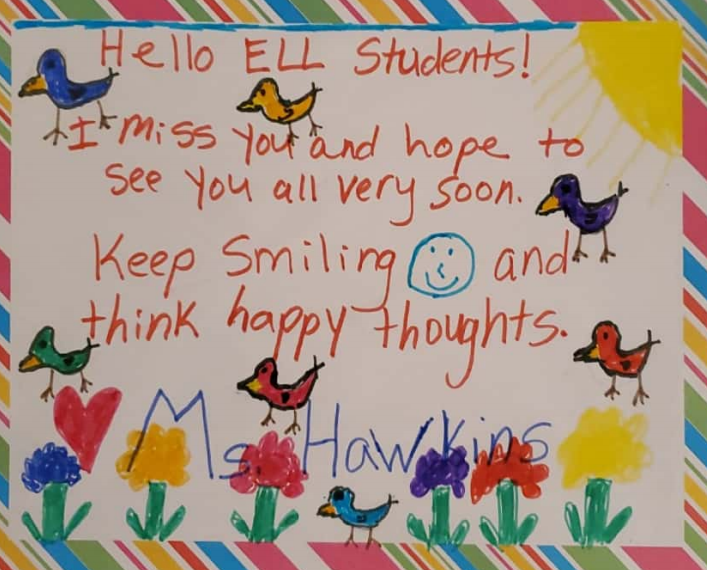 Hello ELL Students!
I miss you and hope to
see you all very soon.
Keep Smiling and
think happy thoughts.
Ms. Hawkins